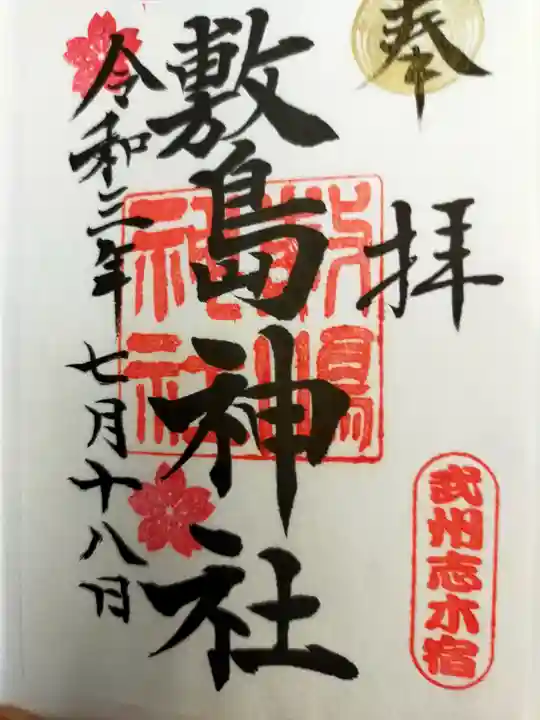 奉
拝
武州志木宿
敷島神社
敷島神社
令和三年七月十八日